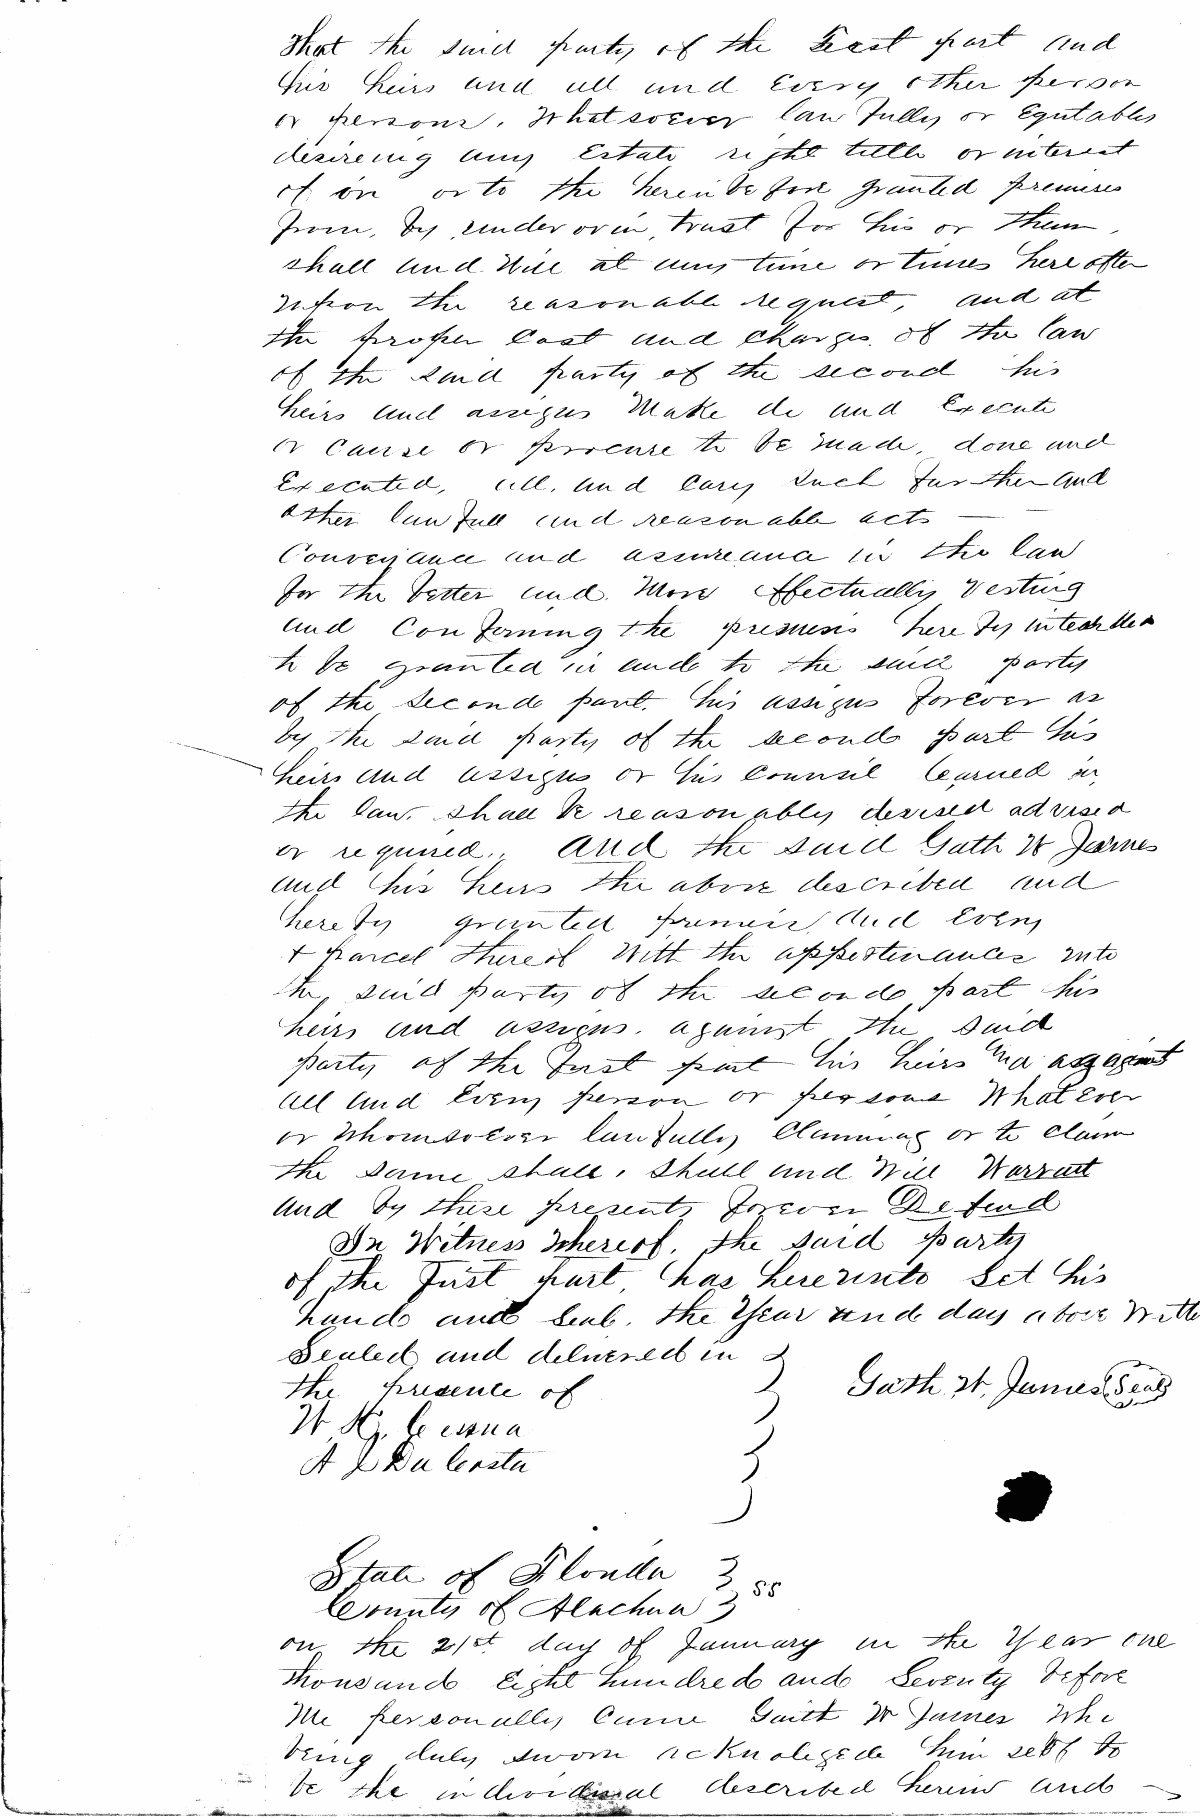 That the said party of the First part and
his heirs and all and Every other person
or persons, Whatsoever lawfully or Equitably
desireing any Estate right tittle or interest
of on or to the hereinbefore granted premises
from, by, under or in, trust for his or them,
shall and Will at any time or times here after
upon the reasonable request, and at
the proper Cost and Charges of the law
of the said party of the second his
heirs and assigns Make do and Execute
or Cause or procure to be made, done and
Executed, all, and Every such further and
other lawfull and reasonable acts —
Conveyance and assureance in the law
for the better and More Effectually Vesting
and Confirming the premises hereby intended
to be granted in and to the said party
of the Second part. his assigns forever as
by the said party of the second part his
heirs and assigns or his Counsil learned in
the law, shall be reasonably devised advised
or required., And the said Gath W James
and his heirs the above described and
hereby granted premises, and Every
+ parcel thereof With the appertinances unto
the said party of the second part his
heirs and assigns. against the said
party of the first part his heirs and against
all and Every person or persons What Ever
or Whomsoever lawfully Claiming or to claim
the same shall, Shall and Will Warrant
and by these presents forever Defend
In Witness Whereof, the said party
of the First part, has hereunto Set his
hand and Seal, the Year and day above Writte
Sealed and delivered in
the presence of
Gath W. James Seal
W K. Cessna
A J Da Costa
State of Florida
County of Alachua ss
on the 21st day of January in the Year one
thousand Eight hundred and Seventy before
Me personally Came Gaith W James Who
being duly sworn acknolegede him self to
be the individual described herein and